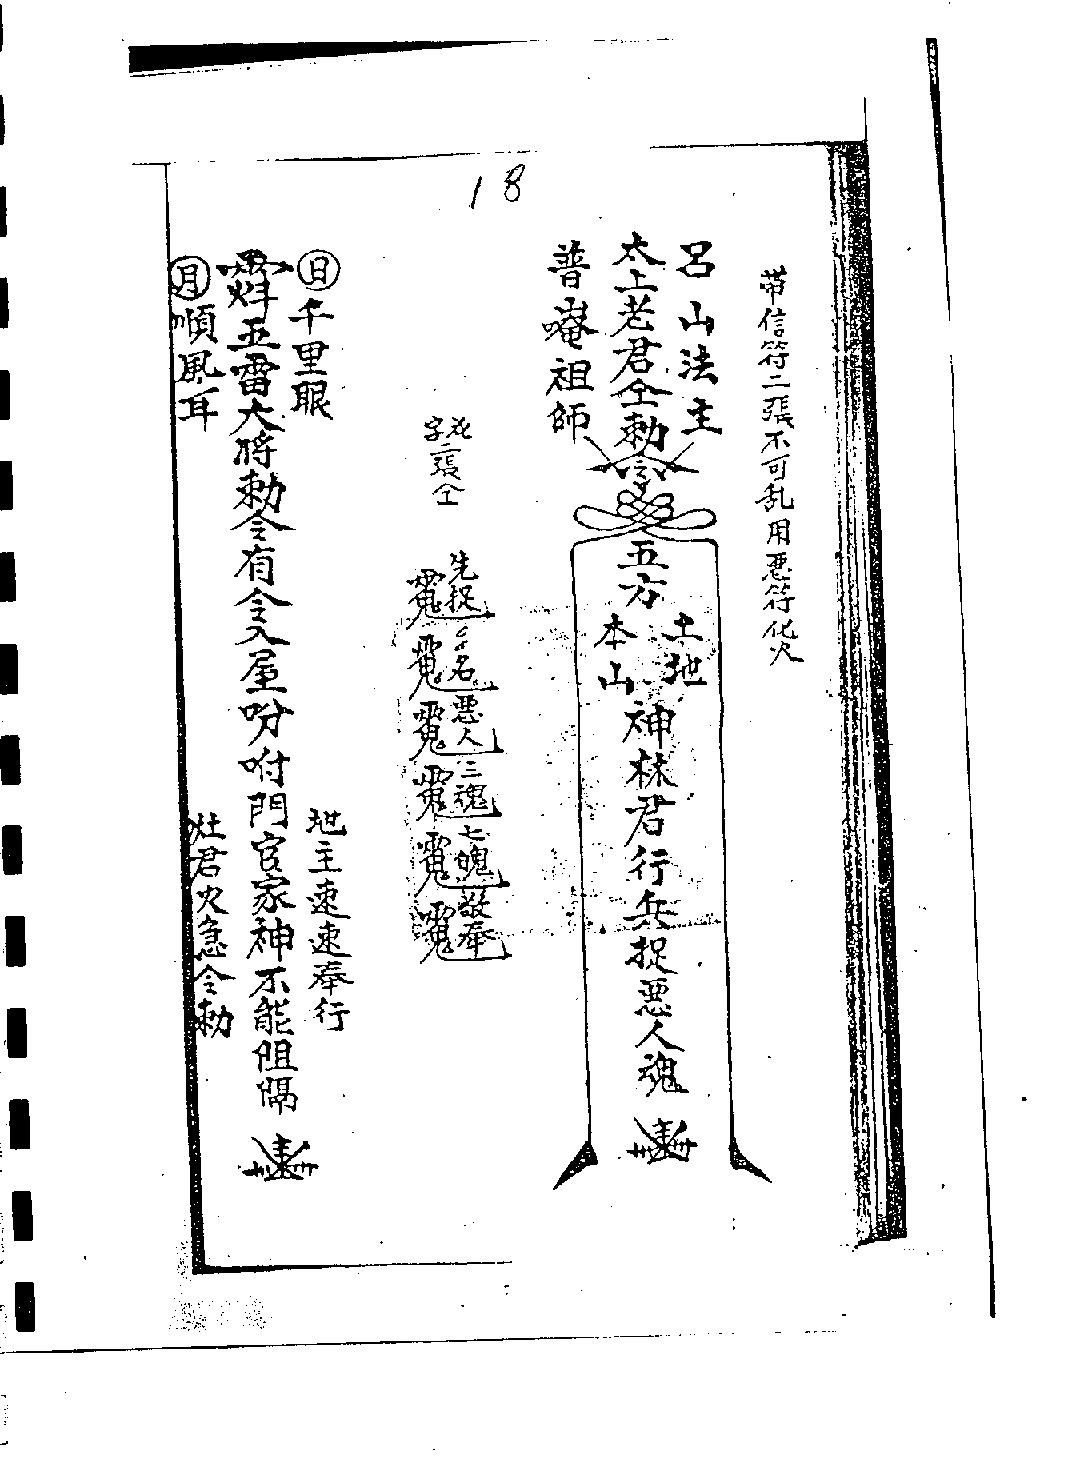 18
帶信符二張不可乱用惡符化火
呂山法主
太上老君仝勅令
普庵祖師
五方
土地
本山
神林君行兵捉惡人魂
二張仝
先捉
名
惡人
三魂
七魄
敬奉
日千里眼
五雷大將勅令有令入屋吩咐門官家神不能阻隔
月順風耳
地主速速奉行
灶君火急令勅